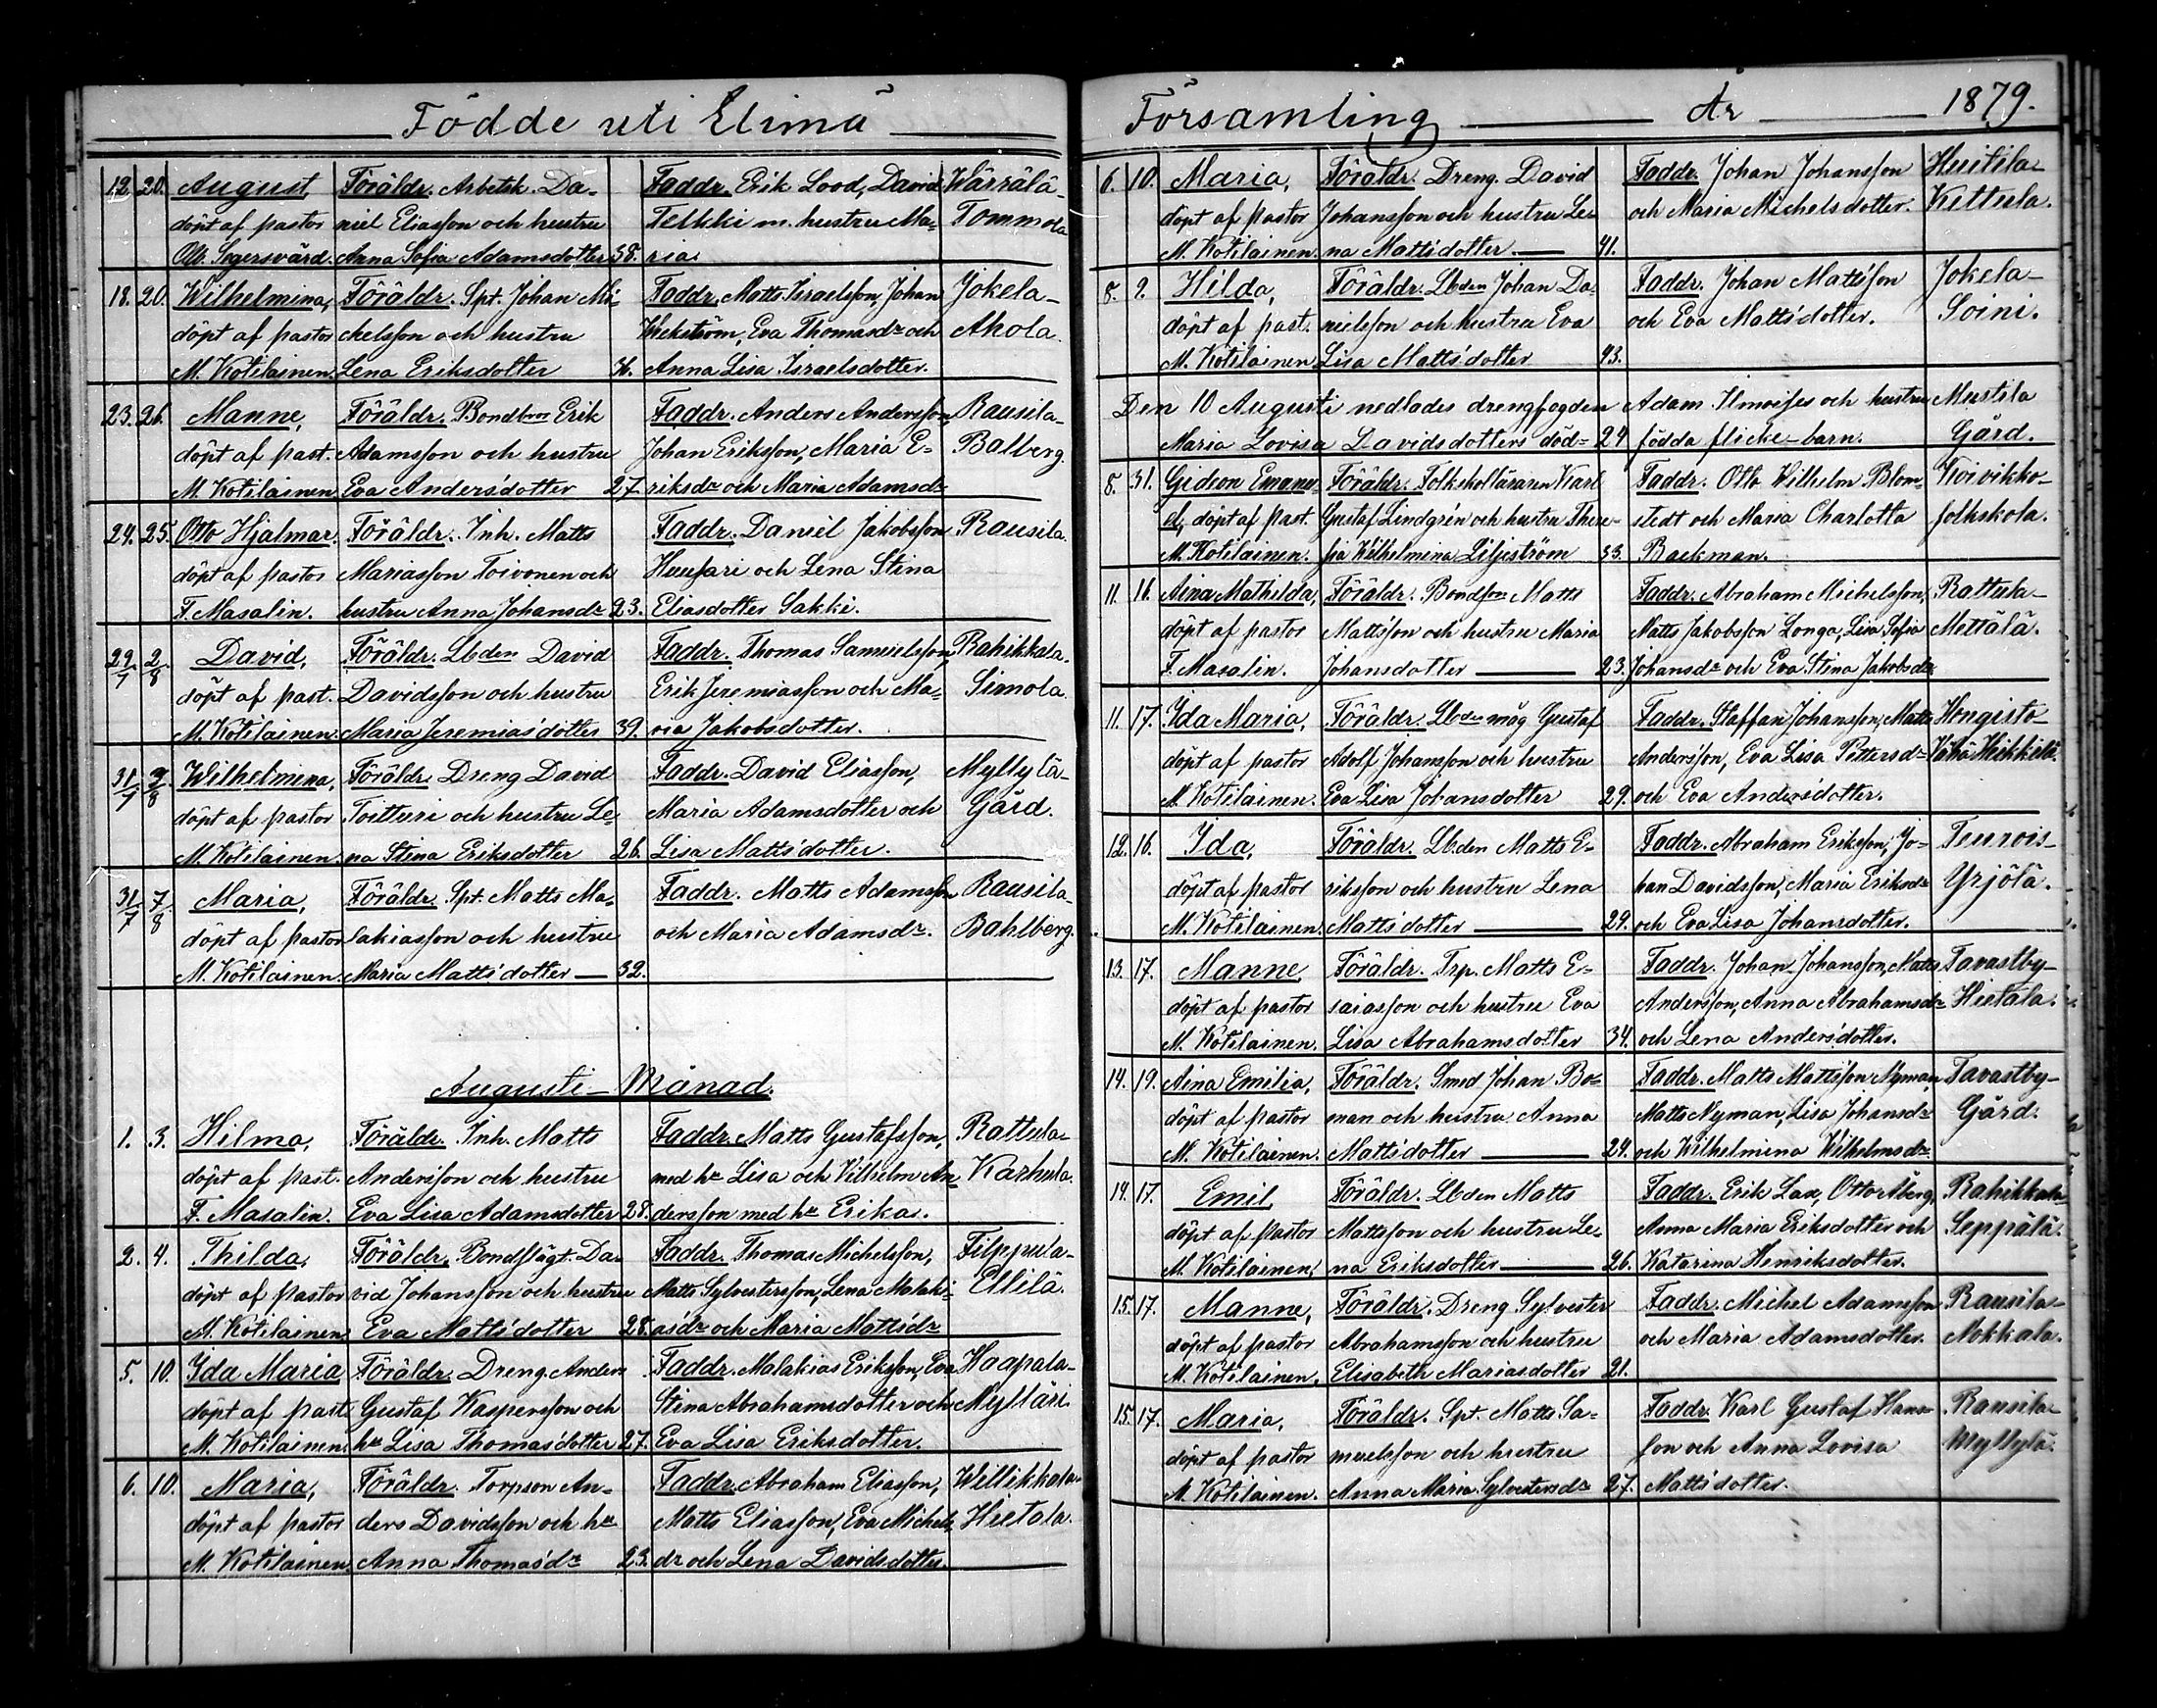 Födde uti Elimä
12. 20. August, Föräldr. Arbetsk. Da- Faddr. Erik Lood, David Wärrälä-
döpt af pastor niel Eliasson och hustru Telkki m. hustru Ma- Tommola
Otto Segersvärd. Anna Sofia Adamsdotter 38. ria.
18. 20. Wilhelmina, Föräldr. Spt. Johan Mi- Faddr. Matts Israelsson, Johan Jokela-
döpt af pastor chelsson och hustru Wekström, Eva Thomasdr och Ahola.
M. Kotilainen. Lena Eriksdotter Anna Lisa Israelsdotter.
23. 26. Manne, Föräldr. Bondbror Erik Faddr. Anders Andersson, Rausila-
döpt af past. Adamsson och hustru Johan Eriksson, Maria E- Balberg.
M. Kotilainen Eva Andersdotter 27. riksdr och Maria Adamsdr
24. 25. Otto Hjalmar. Föräldr. Inh. Matts Faddr. Daniel Jakobsson Rausila.
döpt af pastor Mariasson Toivonen och Huusari och Lena Stina
F. Masalin. hustru Anna Johansdr 23. Eliasdotter Sakki.
29/7 2/8 David, Föräldr. Lbden David Faddr. Thomas Samuelsson, Rahikkala-
döpt af past. Davidsson och hustru Erik Jeremiasson och Ma- Simola.
M. Kotilainen. Maria Jeremiasdotter 39. ria Jakobsdotter.
31/7 Wilhelmina, Föräldr. Dreng David Faddr. David Eliasson, Myllylä-
döpt af pastor Toitturi och hustru Le- Maria Adamsdotter och Gård.
M. Kotilainen. na Stina Eriksdotter 26. Lisa Mattsdotter.
31/7 7/8 Maria, Föräldr. Spt. Matts Ma- Faddr. Matts Adamsson Rausila-
döpt af pastor lakiasson och hustru och Maria Adamsdr. Bahlberg.
M. Kotilainen. Maria Mattsdotter — 32.
Augusti – Månad.
1. 3. Hilma, Föräldr. Inh. Matts Faddr. Matts Gustafsson, Rattula-
döpt af past. Andersson och hustru med hu Lisa och Wilhelm An- Karhula.
F. Masalin. Eva Lisa Adamsdotter 28. dersson med hu Erika.
2. 4. Thilda, Föräldr. Bondflägt. Da- Faddr. Thomas Michelsson, Filppula-
döpt af pastor vid Johansson och hustru Matts Sylvestersson, Lena Malaki- Ellilä.
M. Kotilainen Eva Mattsdotter 28. asdr och Maria Mattsdr
5. 10. Ida Maria Föräldr. Dreng. Anders Faddr. Malakias Eriksson, Eva Haapala-
döpt af past. Gustaf Kaspersson och Stina Abrahamsdotter och Mylläri.
M. Kotilainen. hu Lisa Thomasdotter 27. Eva Lisa Eriksdotter.
6. 10. Maria, Föräldr. Torpson An- Faddr. Abraham Eliasson, Willikkala-
döpt af pastor ders Davidsson och hu Matts Eliasson, Eva Michels- Hietala.
M. Kotilainen Anna Thomasdr 23. dr och Lena Davidsdotter.
Församling År 1879.
6. 10. Maria, Föräldr. Dreng. David Faddr. Johan Johansson Huitila-
döpt af pastor Johansson och hustru Le- och Maria Michelsdotter. Kettula.
M. Kotilainen. na Mattsdotter — 41.
8. 9. Hilda, Föräldr. Lbden Johan Da- Faddr. Johan Mattsson Jokela-
döpt af past. nielsson och hustru Eva och Eva Mattsdotter. Soini.
M. Kotilainen Lisa Mattsdotter 43.
Den 10 Augusti nedlades drengfogden Adam Ilmoises och hustru Mustila
Maria Lovisa Davidsdotters död= 29 födda flicke-barn. Gård.
8. 31. Gideon Emanu- Föräldr. Folkskolläraren Karl Faddr. Otto Wilhelm Blom- Koivikko-
el, döpt af past. Gustaf Lindgrén och hustru There- stedt och Maria Charlotta folkskola.
M. Kotilainen. sia Wilhelmina Liljeström 33. Backman.
11. 16. Aina Mathilda, Föräldr. Bondson Matts Faddr. Abraham Michelsson, Rattula-
döpt af pastor Mattsson och hustru Maria Matts Jakobsson Longa, Lisa Sofia Mettälä.
F. Masalin. Johansdotter — 23. Johansdr och Eva Stina Jakobsdr
11. 17. Ida Maria, Föräldr. Lbden måg Gustaf Faddr. Staffan Johansson, Matts Hongisto-
döpt af pastor Adolf Johansson och hustru Andersson, Eva Lisa Pettersdr Vähä Heikkilä.
M. Kotilainen. Eva Lisa Johansdotter 29. och Eva Andersdotter.
12. 16. Ida, Föräldr. Lbden Matts E- Faddr. Abraham Eriksson, Jo- Teurois-
döpt af pastor riksson och hustru Lena han Davidsson, Maria Eriksdr Yrjölä.
M. Kotilainen. Mattsdotter — 29. och Eva Lisa Johansdotter.
13. 17. Manne, Föräldr. Trp. Matts E- Faddr. Johan Johansson, Matts Tavastby-
döpt af pastor saiasson och hustru Eva Andersson, Anna Abrahamsdr Hietala.
M. Kotilainen. Lisa Abrahamsdotter 34. och Lena Andersdotter.
14. 19. Aina Emilia, Föräldr. Smed Johan Bo- Faddr. Matts Mattsson Nyman Tavastby-
döpt af pastor man och hustru Anna Matts Nyman, Lisa Johansdr Gård.
M. Kotilainen. Mattsdotter — 24. och Wilhelmina Wilhelmsdr
14. 17. Emil, Föräldr. Lbden Matts Faddr. Erik Lax, Otto Åberg, Rahikkala-
döpt af pastor Mattsson och hustru Le- Anna Maria Eriksdotter och Seppälä.
M. Kotilainen, na Eriksdotter — 26. Katarina Henriksdotter.
15. 17. Manne, Föräldr. Dreng Sylvester Faddr. Michel Adamsson Rausila-
döpt af pastor Abrahamsson och hustru och Maria Adamsdotter. Nokkala.
M. Kotilainen. Elisabeth Mariasdotter 21.
15. 17. Maria, Föräldr. Spt. Matts Sa- Faddr. Karl Gustaf Hans- Rausila-
döpt af pastor muelsson och hustru son och Anna Lovisa Myllylä.
M. Kotilainen. Anna Maria Sylvestersdr 27. Mattsdotter.